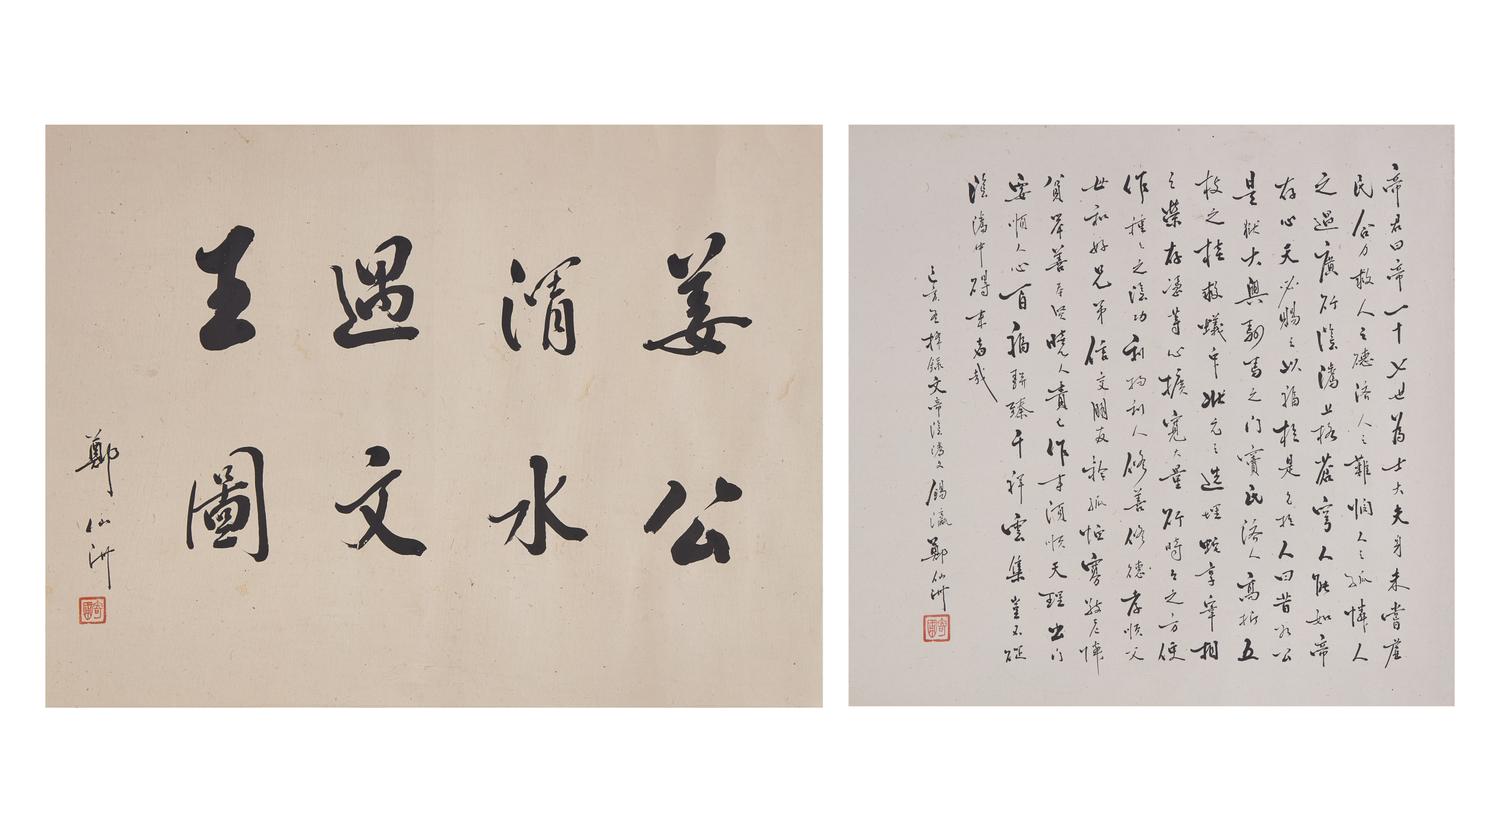 姜公
渭水
遇文
王圖
鄭仙洲
帝君曰帝一十七世為士大夫身未嘗虐
民合力救人之德濟人之難憫人之孤憐人
之過廣行陰騭上格蒼穹人能如帝
存心天必賜之以福於是之於人曰昔于公
是獄大興駟馬之門竇氏濟人高折五
枝之桂救蟻中狀元之選埋蛇享宰相
之榮存憑等心擴寬大量行時々之方便
作種々之陰功利物利人修善修德孝順父
母和好兄弟信交朋友矜孤恤寡敬老憐
貧舉善薦賢曉人責己作事須順天理出行
要順人心百福駢臻千祥雲集豈不從
陰騭中得來者哉
己亥冬梓錄文帝陰騭文錫瀛鄭仙洲